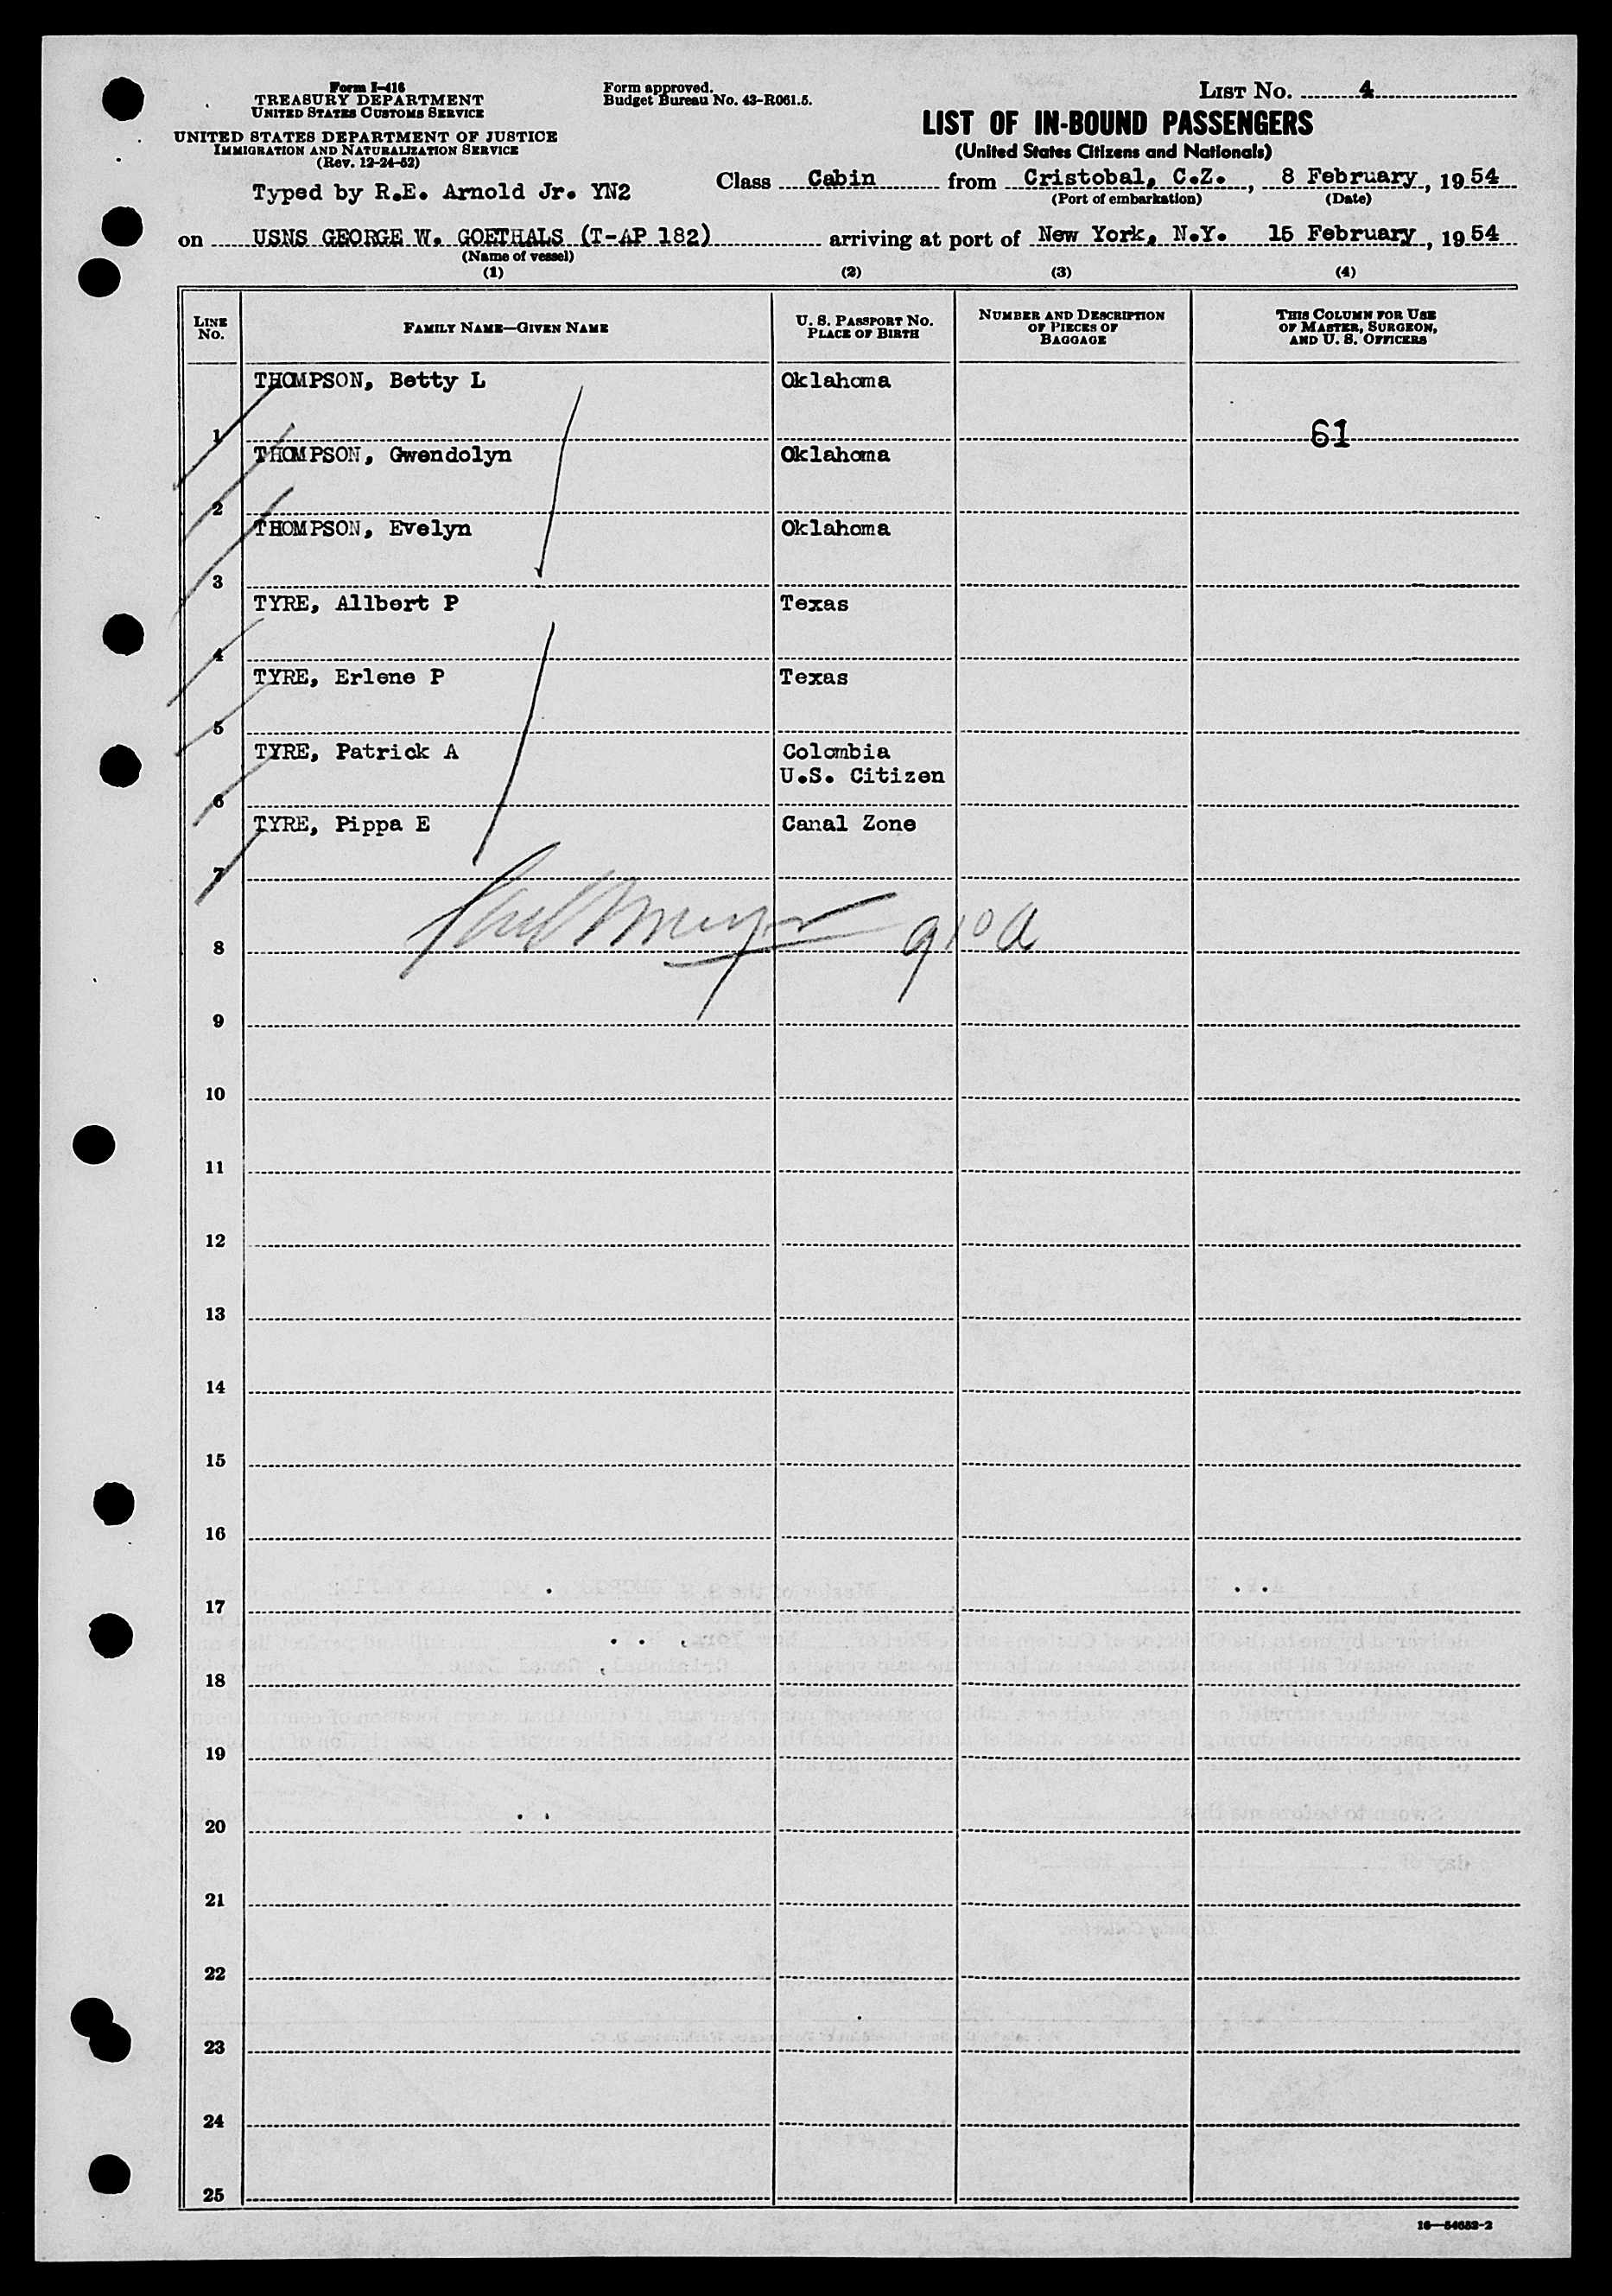 Form I-416
TREASURY DEPARTMENT
UNITED STATES CUSTOMS SERVICE
UNITED STATES DEPARTMENT OF JUSTICE
IMMIGRATION AND NATURALIZATION SERVICE
(Rev. 12-24-52)
Form approved.
Budget Bureau No. 43-R061.5.
LIST No. 4
LIST OF IN-BOUND PASSENGERS
(United States Citizens and Nationals)
Typed by R.E. Arnold Jr. YN2
Class Cabin from Cristobal, C.Z., 8 February, 1954
(Port of embarkation) (Date)
on USNS GEORGE W. GOETHALS (T-AP 182) arriving at port of New York, N.Y. 15 February, 1954
(Name of vessel)
(1) (2) (3) (4)
LINE No. FAMILY NAME—GIVEN NAME U. S. PASSPORT No. PLACE OF BIRTH NUMBER AND DESCRIPTION OF PIECES OF BAGGAGE THIS COLUMN FOR USE OF MASTER, SURGEON, AND U. S. OFFICERS
1 THOMPSON, Betty L Oklahoma 61
2 THOMPSON, Gwendolyn Oklahoma
3 THOMPSON, Evelyn Oklahoma
4 TYRE, Allbert P Texas
5 TYRE, Erlene P Texas
6 TYRE, Patrick A Colombia
U.S. Citizen
7 TYRE, Pippa E Canal Zone
8 910a
9
10
11
12
13
14
15
16
17
18
19
20
21
22
23
24
25
16—54652-2